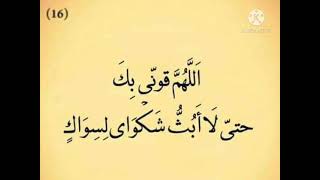 (16)
اَللَّهُمَّ قَوِّنِّى بِكَ
حتىّ لَا أَبُثُّ شَكْوَاى لِسِوَاكٍ